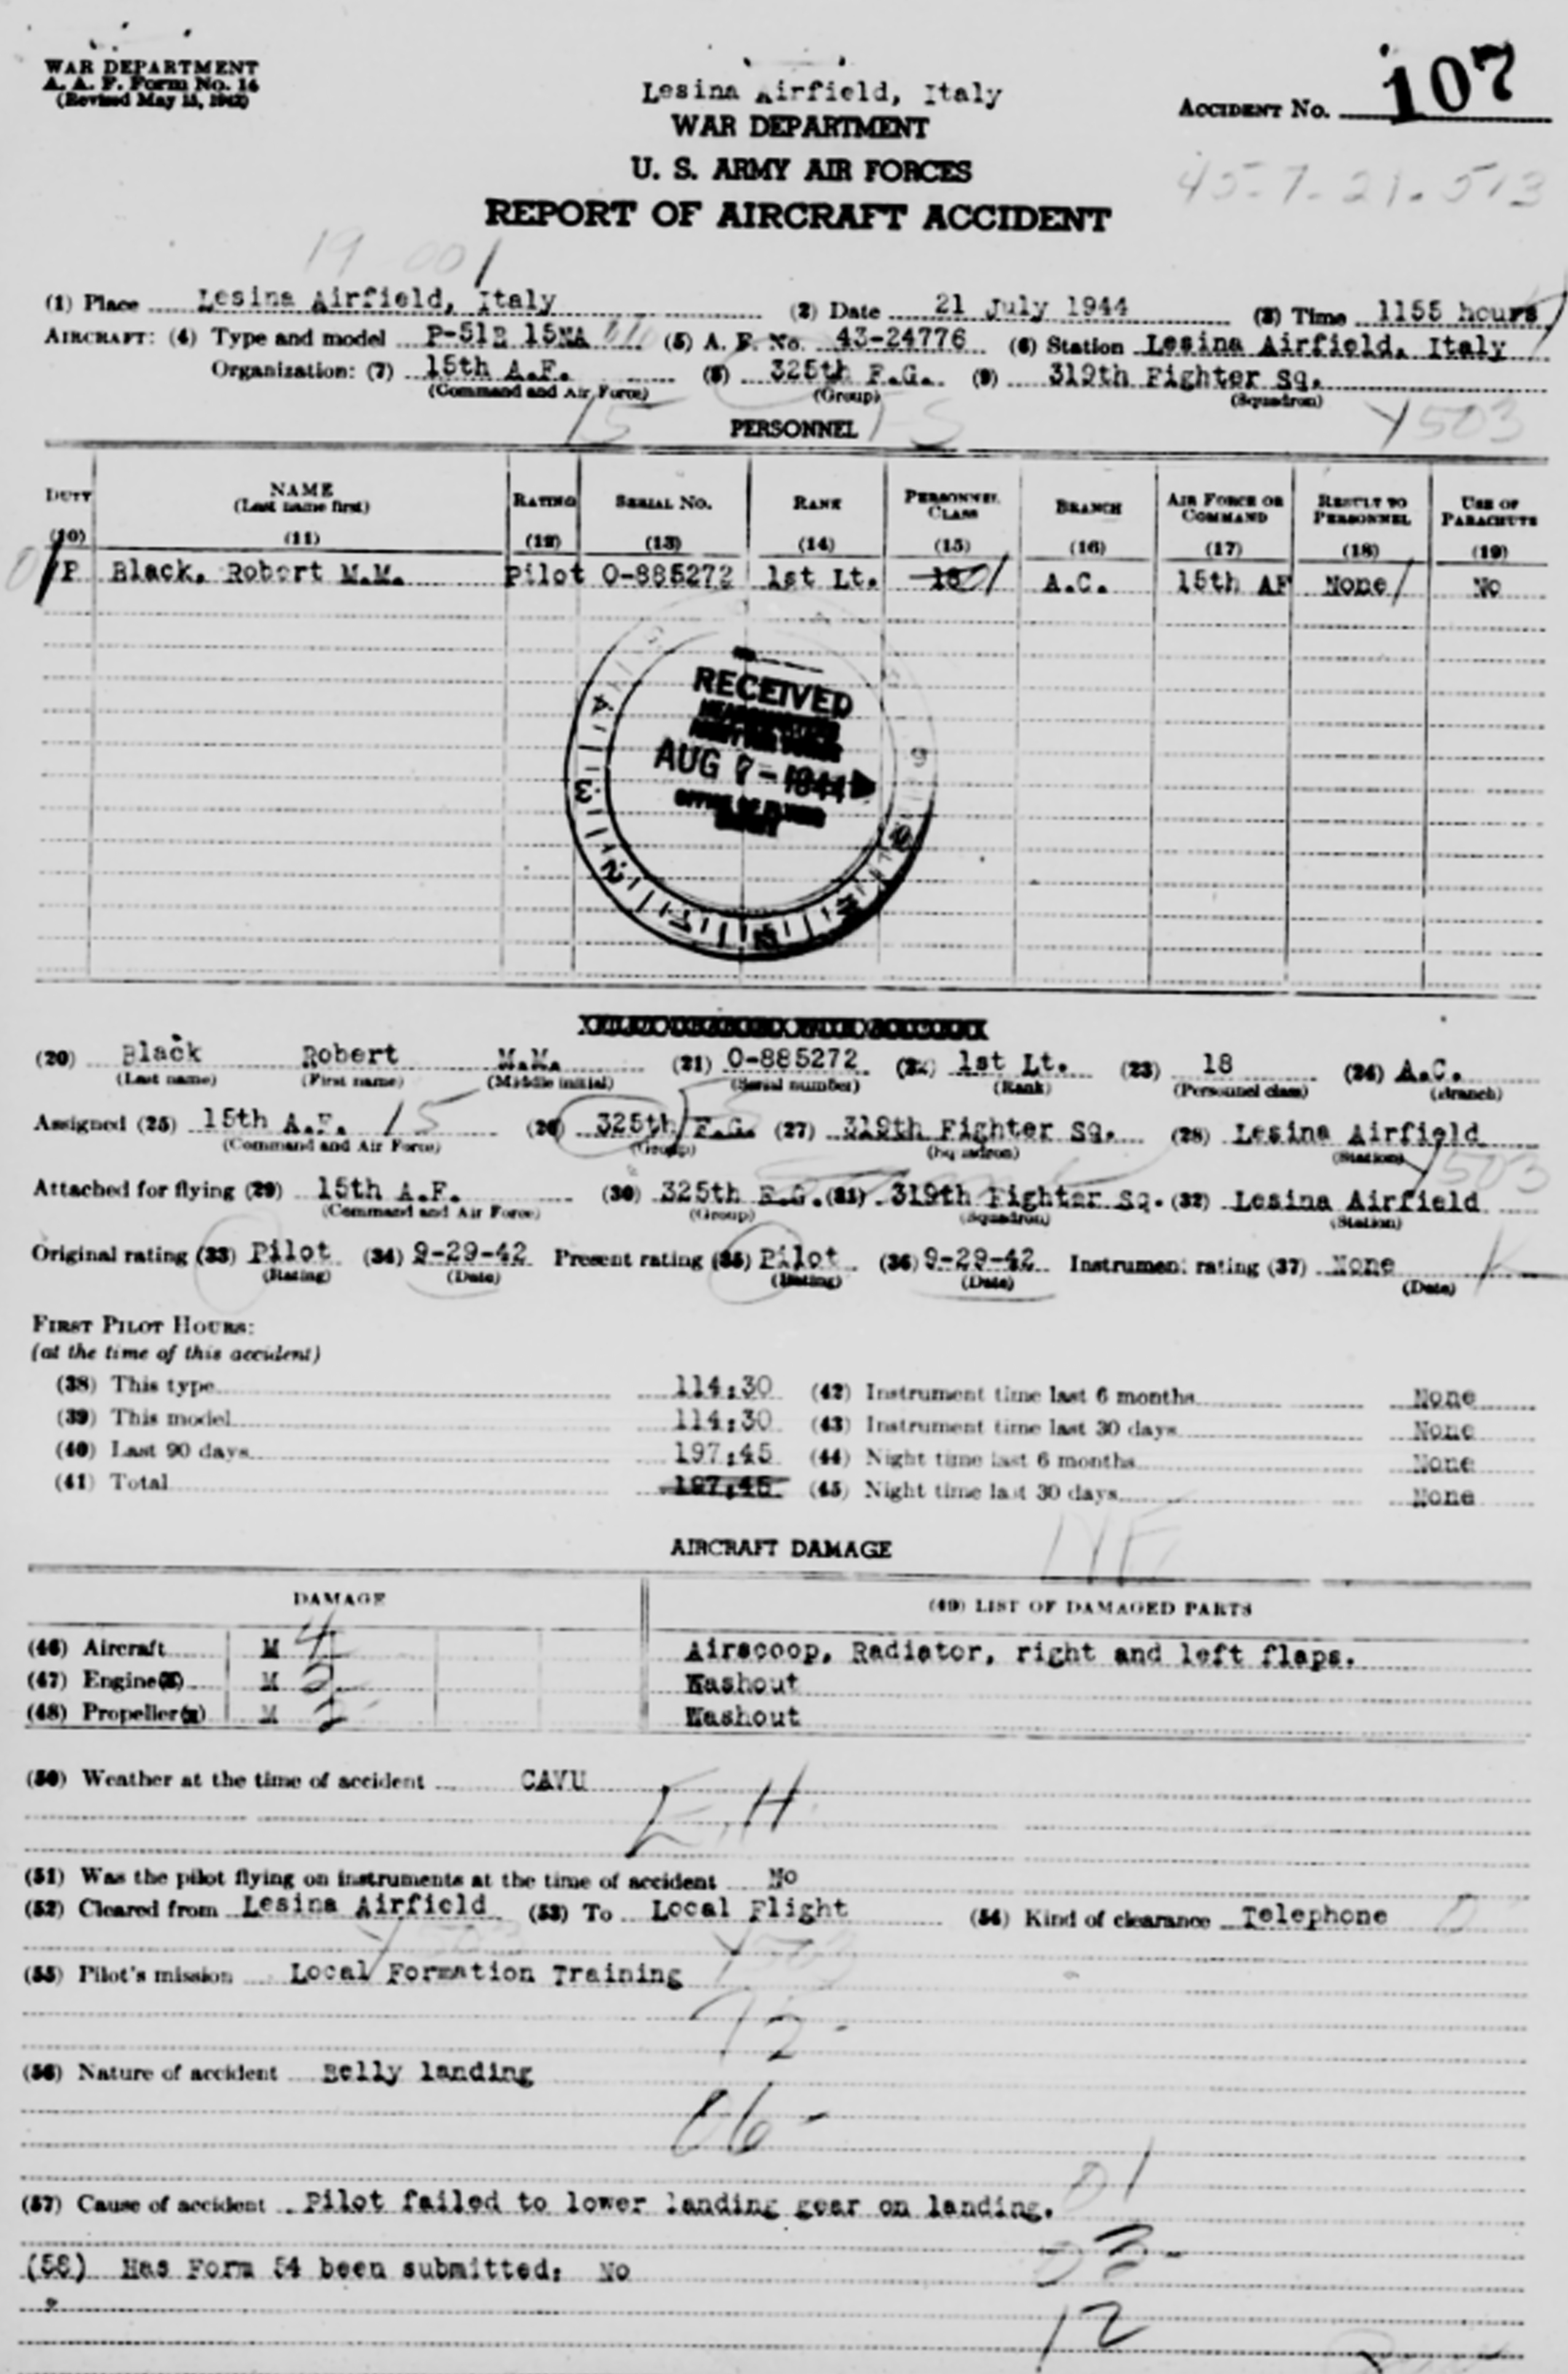 WAR DEPARTMENT
A. A. F. Form No. 14
(Revised May 15, 1942)
Lesina Airfield, Italy
WAR DEPARTMENT
U. S. ARMY AIR FORCES
REPORT OF AIRCRAFT ACCIDENT
ACCIDENT No. 107
45-7-21-513
19 001
(1) Place Lesina Airfield, Italy (2) Date 21 July 1944 (3) Time 1155 hours
AIRCRAFT: (4) Type and model P-51B 15NA (5) A. F. No. 43-24776 (6) Station Lesina Airfield, Italy
Organization: (7) 15th A.F. (8) 325th F.G. (9) 319th Fighter Sq.
(Command and Air Force) (Group) (Squadron)
15 PERSONNEL Y 503
DUTY NAME RATING SERIAL NO. RANK PERSONNEL CLASS BRANCH AIR FORCE OR COMMAND RESULT TO PERSONNEL USE OF PARACHUTE
(Last name first)
(10) (11) (12) (13) (14) (15) (16) (17) (18) (19)
P Black, Robert M.M. Pilot O-885272 1st Lt. 18 01 A.C. 15th AF None No
RECEIVED
AUG 7 - 1944
(20) Black Robert M.M. (21) O-885272 (22) 1st Lt. (23) 18 (24) A.C.
(Last name) (First name) (Middle initial) (Serial number) (Rank) (Personnel class) (Branch)
Assigned (25) 15th A.F. 15 (26) 325th F.G. (27) 319th Fighter Sq. (28) Lesina Airfield
(Command and Air Force) (Group) (Squadron) (Station) Y503
Attached for flying (29) 15th A.F. (30) 325th F.G. (31) 319th Fighter Sq. (32) Lesina Airfield
(Command and Air Force) (Group) (Squadron) (Station)
Original rating (33) Pilot (34) 9-29-42 Present rating (35) Pilot (36) 9-29-42 Instrument rating (37) None
(Rating) (Date) (Rating) (Date) (Date)
FIRST PILOT HOURS:
(at the time of this accident)
(38) This type 114:30 (42) Instrument time last 6 months None
(39) This model 114:30 (43) Instrument time last 30 days None
(40) Last 90 days 197:45 (44) Night time last 6 months None
(41) Total 197:45 (45) Night time last 30 days None
AIRCRAFT DAMAGE
DAMAGE (49) LIST OF DAMAGED PARTS
(46) Aircraft M 4 Airscoop, Radiator, right and left flaps.
(47) Engine(s) M 2 Washout
(48) Propeller(s) M 2 Washout
(50) Weather at the time of accident CAVU
(51) Was the pilot flying on instruments at the time of accident No
(52) Cleared from Lesina Airfield (53) To Local Flight (54) Kind of clearance Telephone
Y 503 Y503
(55) Pilot's mission Local Formation Training
12-
(56) Nature of accident Belly landing
06-
01
(57) Cause of accident Pilot failed to lower landing gear on landing.
(58) Has Form 54 been submitted: No
12